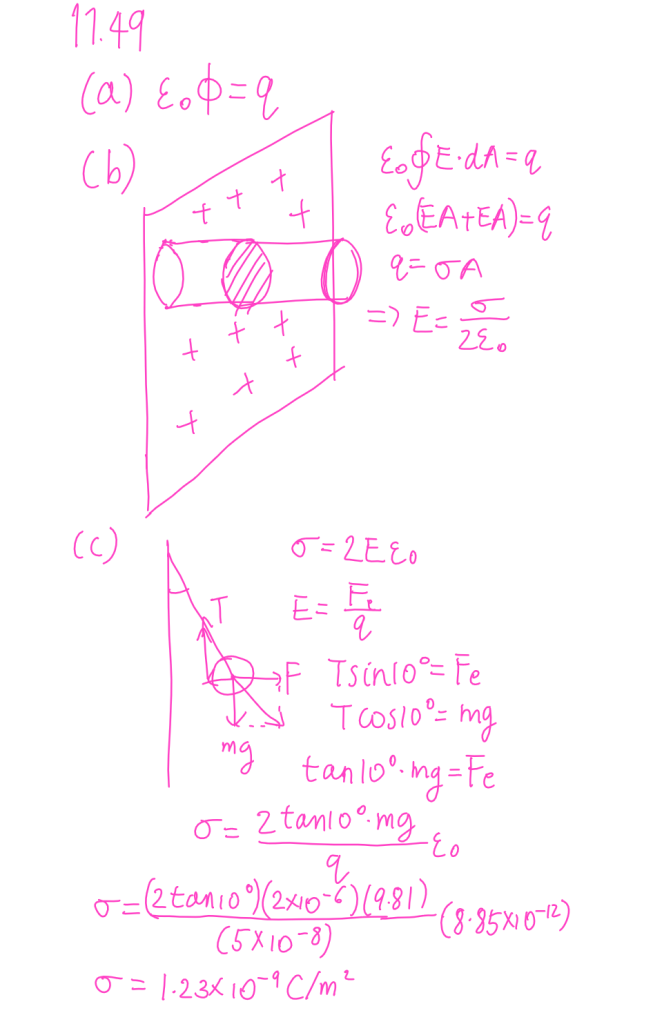 11.49
(a) ε₀ϕ=q
(b)
+ + + +
ε₀∮E·dA=q
ε₀(EA+EA)=q
q=σA
=> E= σ/2ε₀
+ + + + + +
(c)
σ=2Eε₀
E= Fₑ/q
T
F
mg
Tsin10°=Fe
Tcos10°=mg
tan10°·mg=Fe
σ= 2tan10°·mg/q ε₀
σ=(2tan10°)(2×10⁻⁶)(9.81)/(5×10⁻⁸) (8.85×10⁻¹²)
σ=1.23×10⁻⁹C/m²